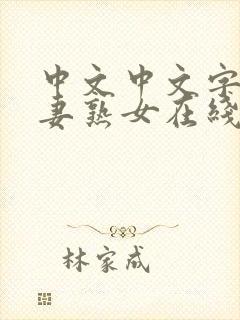 中文中文字
妻熟女在綫
林家成